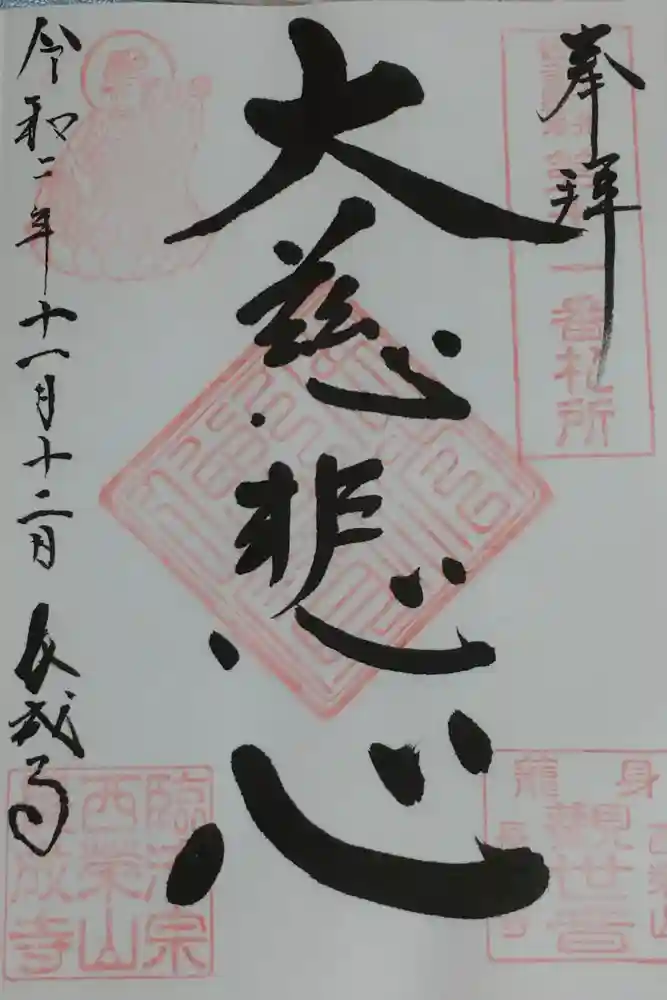 奉拝
一番札所
大慈悲心
身
籠
観世音
令和二年十一月十二日
長成寺
臨済宗
西栄山
長成寺